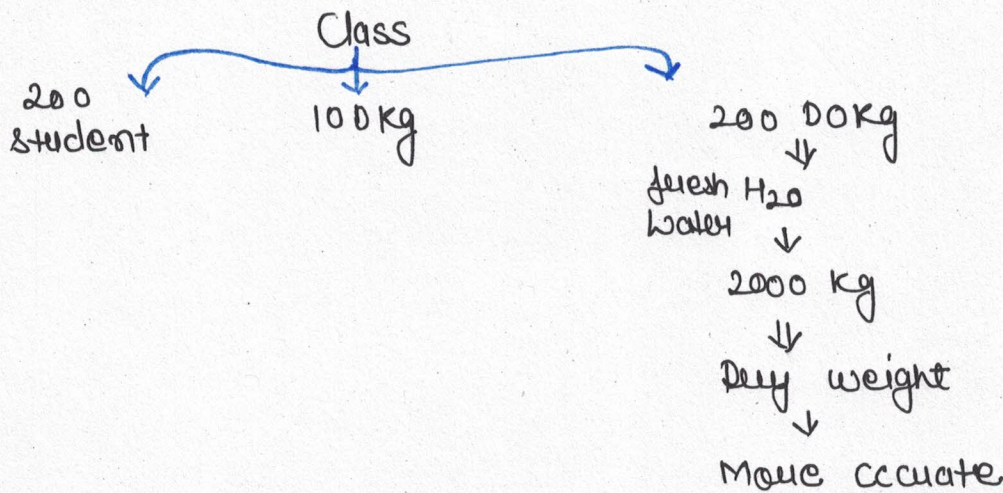 Class
200
student
100kg
200 00kg
fresh H20
water
2000 kg
Dry weight
More cccuate